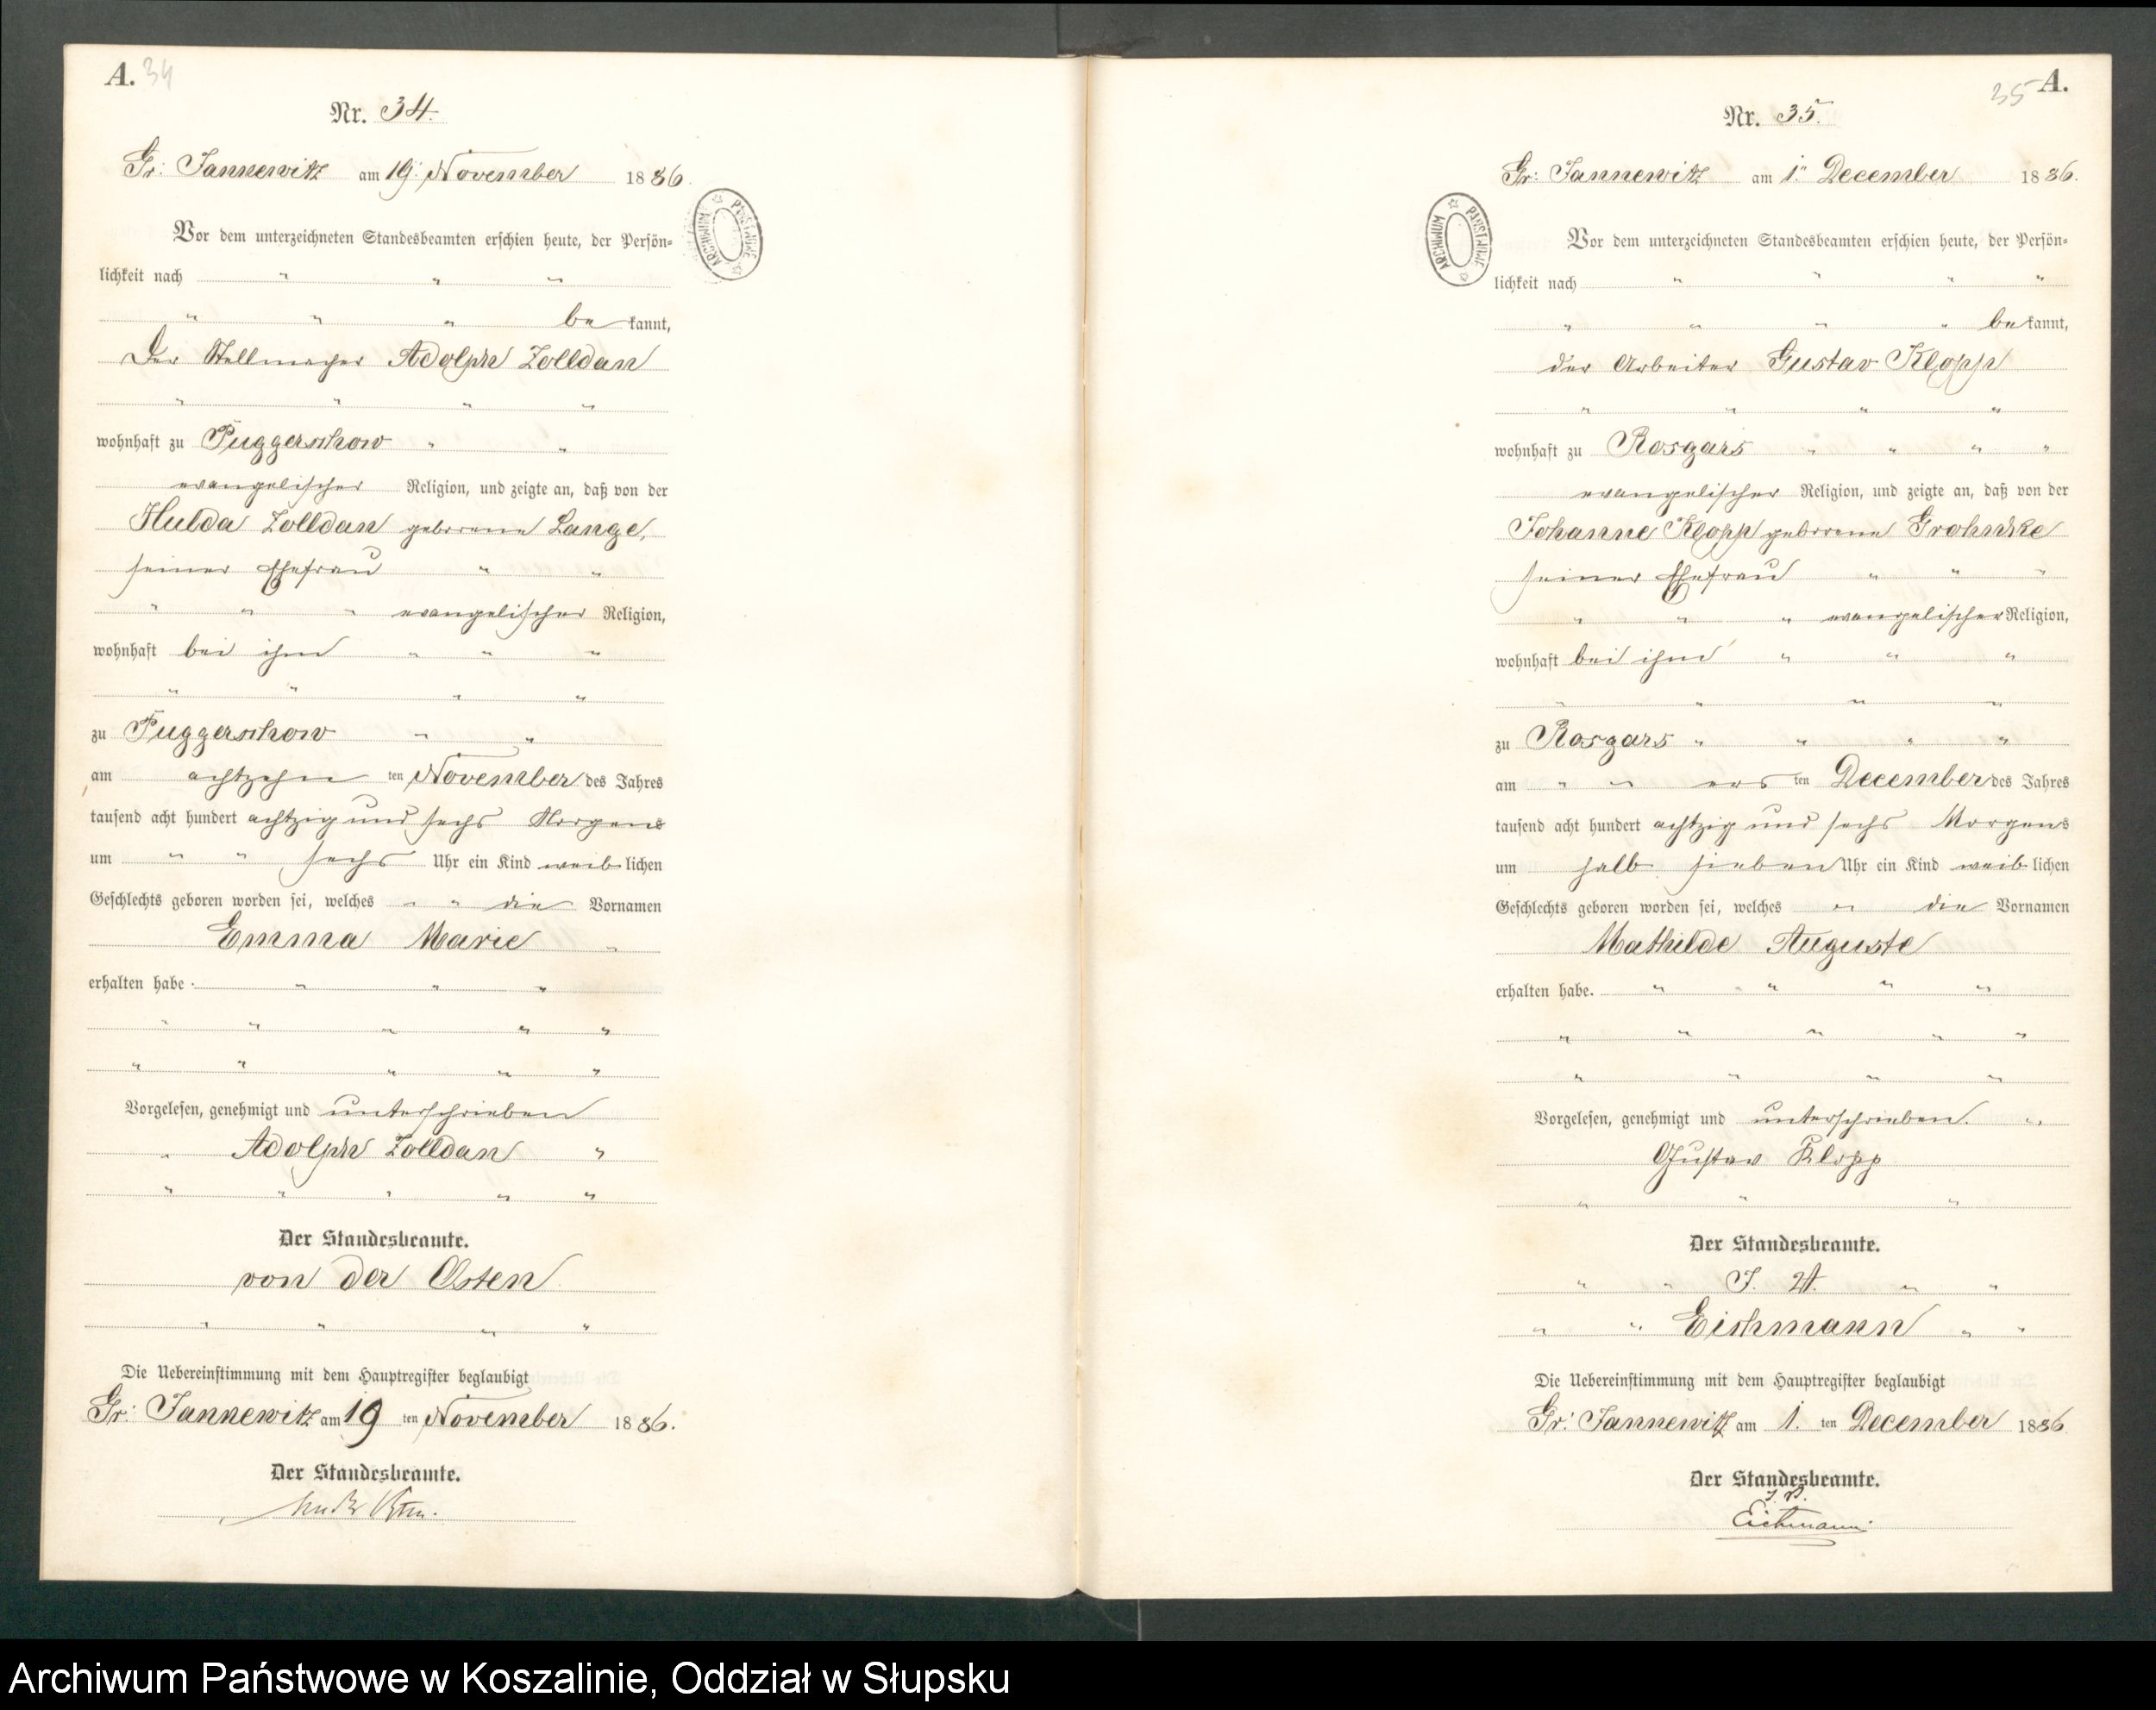 A. 34
Nr. 34.
Gr: Jannewitz am 19. November 1886.
Vor dem unterzeichneten Standesbeamten erschien heute, der Persön-
lichkeit nach " " "
" " " bekannt,
Der Stellmacher Adolph Zolldan
" " " "
wohnhaft zu Puggerschow " "
evangelischer Religion, und zeigte an, daß von der
Hulda Zolldan geborene Lange,
seiner Ehefrau " "
" " " evangelischer Religion,
wohnhaft bei ihm " " "
" " " "
zu Puggerschow " "
am achtzehn ten November des Jahres
tausend acht hundert achtzig und sechs Morgens
um " " sechs Uhr ein Kind weiblichen
Geschlechts geboren worden sei, welches " " die Vornamen
Emma Marie "
erhalten habe. " " "
" " " " "
" " " " "
Vorgelesen, genehmigt und unterschrieben
" Adolph Zolldan "
" " " " "
Der Standesbeamte.
von der Osten
" " " "
Die Uebereinstimmung mit dem Hauptregister beglaubigt
Gr: Jannewitz am 19 ten November 1886.
Der Standesbeamte.
von der Osten.
ARCHIWUM PAŃSTWOWE
35 A.
Nr. 35.
Gr: Jannewitz am 1. December 1886.
Vor dem unterzeichneten Standesbeamten erschien heute, der Persön-
lichkeit nach " " " "
" " " " bekannt,
der Arbeiter Gustav Klopp
" " " "
wohnhaft zu Rosgars " " " "
evangelischer Religion, und zeigte an, daß von der
Johanne Klopp geborene Grohnke
seiner Ehefrau " " "
" " " evangelischer Religion,
wohnhaft bei ihm " " "
" " " "
zu Rosgars " " " "
am " " ersten December des Jahres
tausend acht hundert achtzig und sechs Morgens
um halb sieben Uhr ein Kind weiblichen
Geschlechts geboren worden sei, welches " die Vornamen
Mathilde Auguste
erhalten habe. " " " "
" " " " "
" " " "
Vorgelesen, genehmigt und unterschrieben. "
Gustav Klopp
" " "
Der Standesbeamte.
" " J. V. " "
" " Eichmann " "
Die Uebereinstimmung mit dem Hauptregister beglaubigt
Gr: Jannewitz am 1. ten December 1886
Der Standesbeamte.
J. V.
Eichmann
ARCHIWUM PAŃSTWOWE
Archiwum Państwowe w Koszalinie, Oddział w Słupsku